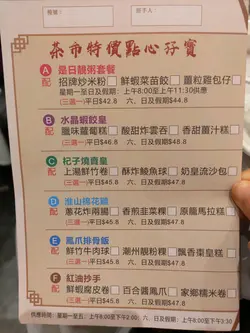 檯號：
經手人：
茶市特價點心孖寶
A 是日靚粥套餐
配 招牌炒米粉 鮮蝦菜苗餃 薑粒雞包仔
星期一至日及假期：上午8:00至上午11:30供應
(三選一)平日$42.8 六、日及假期$44.8
B 水晶蝦餃皇
配 臘味蘿蔔糕 酸甜炸雲吞 香甜薑汁糕
(三選一)平日$45.8 六、日及假期$48.8
C 杞子燒賣皇
配 上湯鮮竹卷 酥炸鯪魚球 奶皇流沙包
(三選一)平日$45.8 六、日及假期$48.8
D 淮山棉花雞
配 蔥花炸兩腸 香煎韮菜粿 原籠馬拉糕
(三選一)平日$45.8 六、日及假期$48.8
E 鳳爪排骨飯
配 鮮竹牛肉球 潮州靚粉粿 飄香棗皇糕
(三選一)平日$45.8 六、日及假期$47.8
F 紅油抄手
配 鮮蝦腐皮卷 百合醬鳳爪 家鄉糯米卷
(三選一)平日$45.8 六、日及假期$48.8
供應時間：星期一至五：上午8:00至下午2:00 六、日及假期：上午8:00至下午3:30